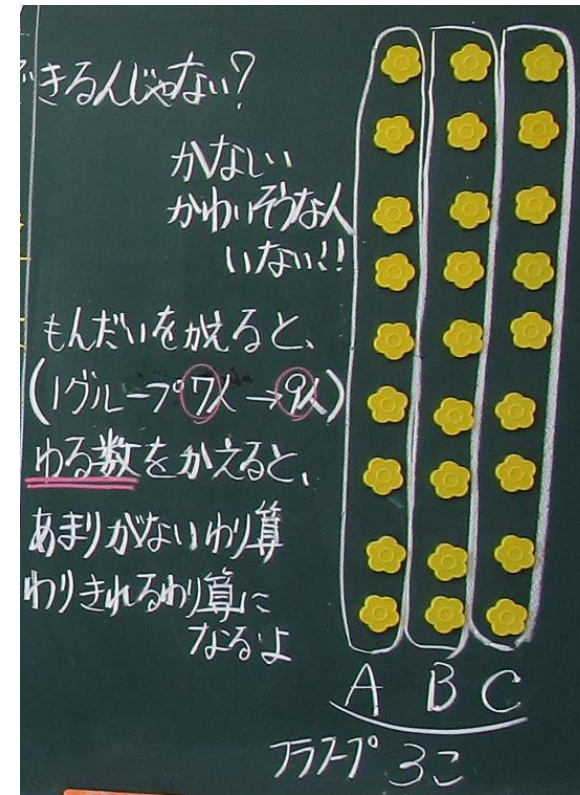 きるんじゃない?
かなしい
かわいそうな人
いない!!
もんだいをかえると、
(1グループ7人→9人)
わる数をかえると、
あまりがないわり算
わりきれるわり算に
なるよ
A B C
グループ 3こ